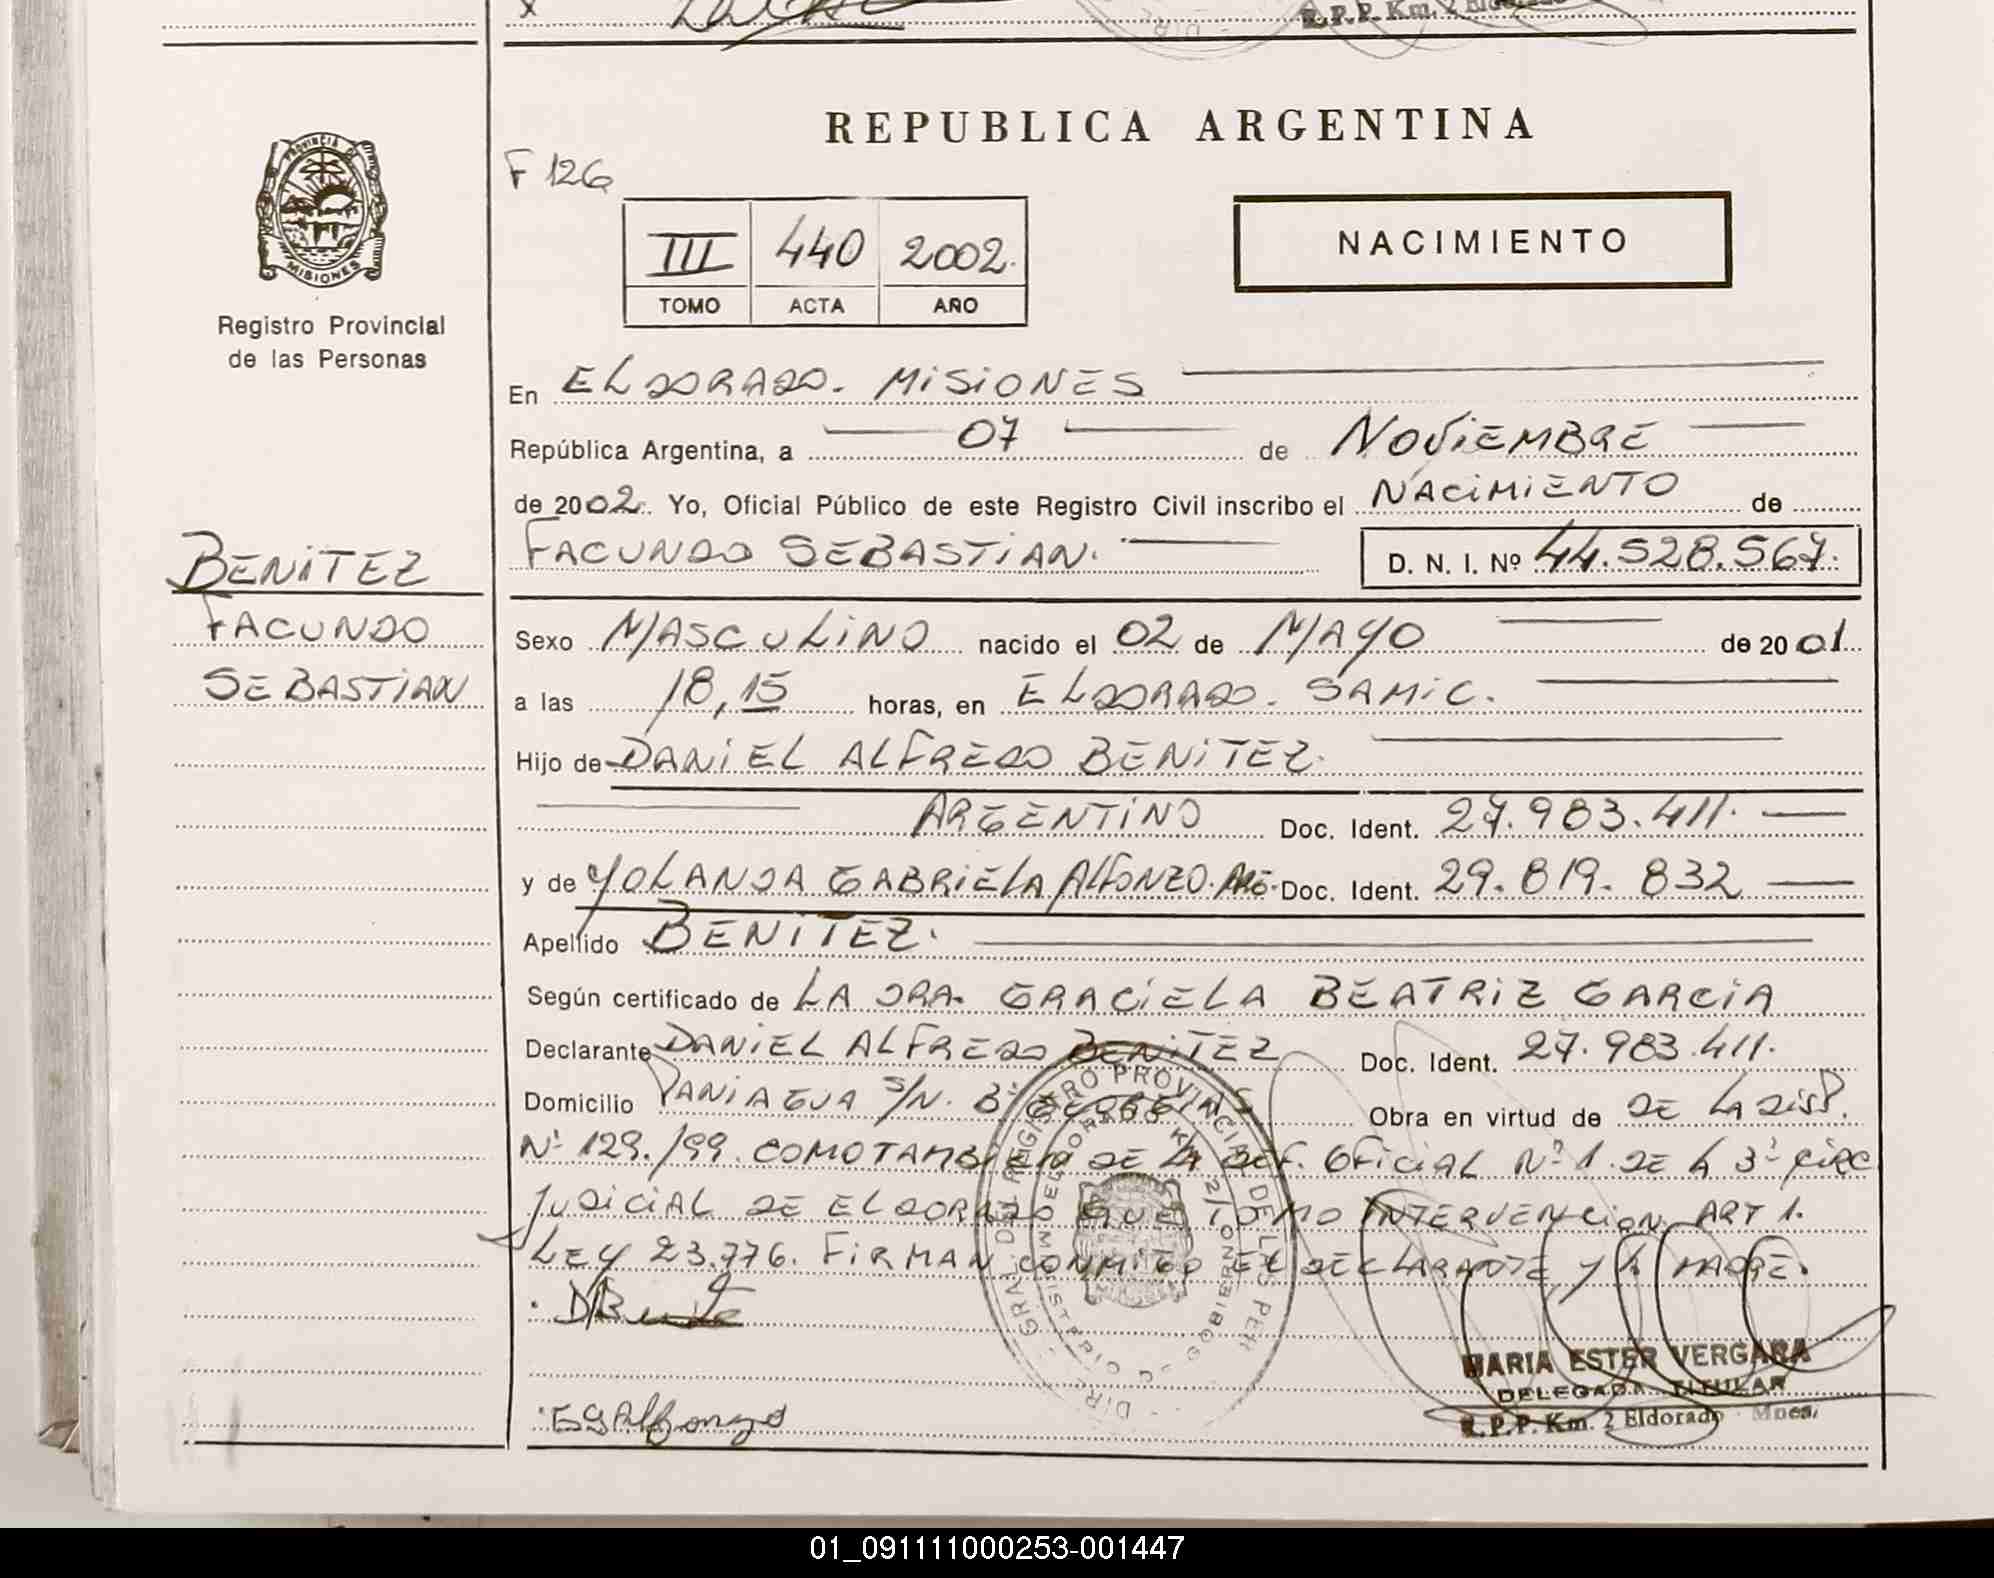 R.P.P. Km. 2 Eldorado
REPUBLICA ARGENTINA
F 126
PROVINCIA DE
MISIONES
Registro Provincial
de las Personas
III 440 2002.
TOMO ACTA AÑO
NACIMIENTO
En ELDORADO. MISIONES
República Argentina, a 07 de NOVIEMBRE
de 2002. Yo, Oficial Público de este Registro Civil inscribo el NACIMIENTO de
FACUNDO SEBASTIAN. D. N. I. Nº 44.528.567.
BENITEZ
FACUNDO
SEBASTIAN
Sexo MASCULINO nacido el 02 de MAYO de 2001
a las 18,15 horas, en ELDORADO. SAMIC.
Hijo de DANIEL ALFREDO BENITEZ.
ARGENTINO Doc. Ident. 27.983.411.
y de YOLANDA GABRIELA ALFONZO. ARG. Doc. Ident. 29.819.832
Apellido BENITEZ.
Según certificado de LA DRA. GRACIELA BEATRIZ GARCIA
Declarante DANIEL ALFREDO BENITEZ Doc. Ident. 27.983.411.
Domicilio PANIAGUA S/N. Bº Obra en virtud de DE LA DISP.
Nº 129./99. COMO TAMBIEN DE LA DEF. OFICIAL Nº 1. DE LA 3ª CIRC
JUDICIAL DE ELDORADO QUE TOMO INTERVENCION ART 1.
LEY 23.776. FIRMAN CONMIGO EL DECLARANTE Y LA MADRE.
MARIA ESTER VERGARA
DELEGADA TITULAR
R.P.P. Km. 2 Eldorado - Mnes.
Alfonzo
01_091111000253-001447